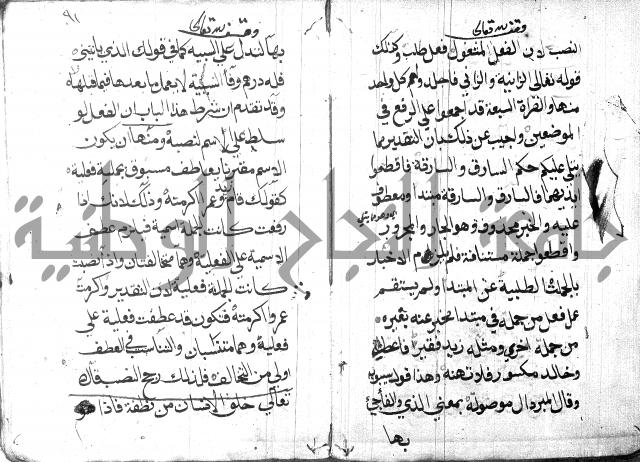 وقف لله تعالى
النصب لان الفعل المشغول فعل طلب وكذلك
قوله تعالى الزانية والزاني فاجلدوا كل واحد
منهما والقراء السبعة قد اجمعوا على الرفع في
الموضعين واجيب عن ذلك بان التقدير مما
يتلى عليكم حكم السارق والسارقة فاقطعوا
ايديهما فالسارق والسارقة مبتدا ومعطوف
عليه والخبر محذوف وهو الجار والمجرور
واقطعوا جملة مستانفة فلم يلزم الاخبار
بالجملة الطلبية عن المبتدا ولم يستقم
عمل فعل من جملة في مبتدا مخبر عنه بغيره
من جملة اخرى ومثله زيد فقير فاعطه
وخالد مكسور فلا تهنه وهذا قول سيبويه
وقال المبرد ال موصولة بمعنى الذي والفاء جي
بها
وقف لله تعالى
٩١
بها لتدل على السببية كما في قولك الذي ياتيني
فله درهم وفاء السببية لا يعمل ما بعدها فيما قبلها
وقد تقدم ان شرط هذا الباب ان الفعل لو
سلط على الاسم لنصبه ومنها ان يكون
الاسم مقترنا بعاطف مسبوق بجملة فعلية
كقولك قام زيد وعمرا اكرمته وذلك لانك اذا
رفعت كانت الجملة اسمية فيلزم عطف
الاسمية على الفعلية وهما متخالفتان واذا نصبت
كانت الجملة فعلية لان التقدير واكرمت
عمرا اكرمته فتكون قد عطفت فعلية على
فعلية وهما متناسبان والتناسب في العطف
اولى من التخالف فلذلك رجح النصب قال
تعالى خلق الانسان من نطفة فاذا هو
جامعة النجاح الوطنية